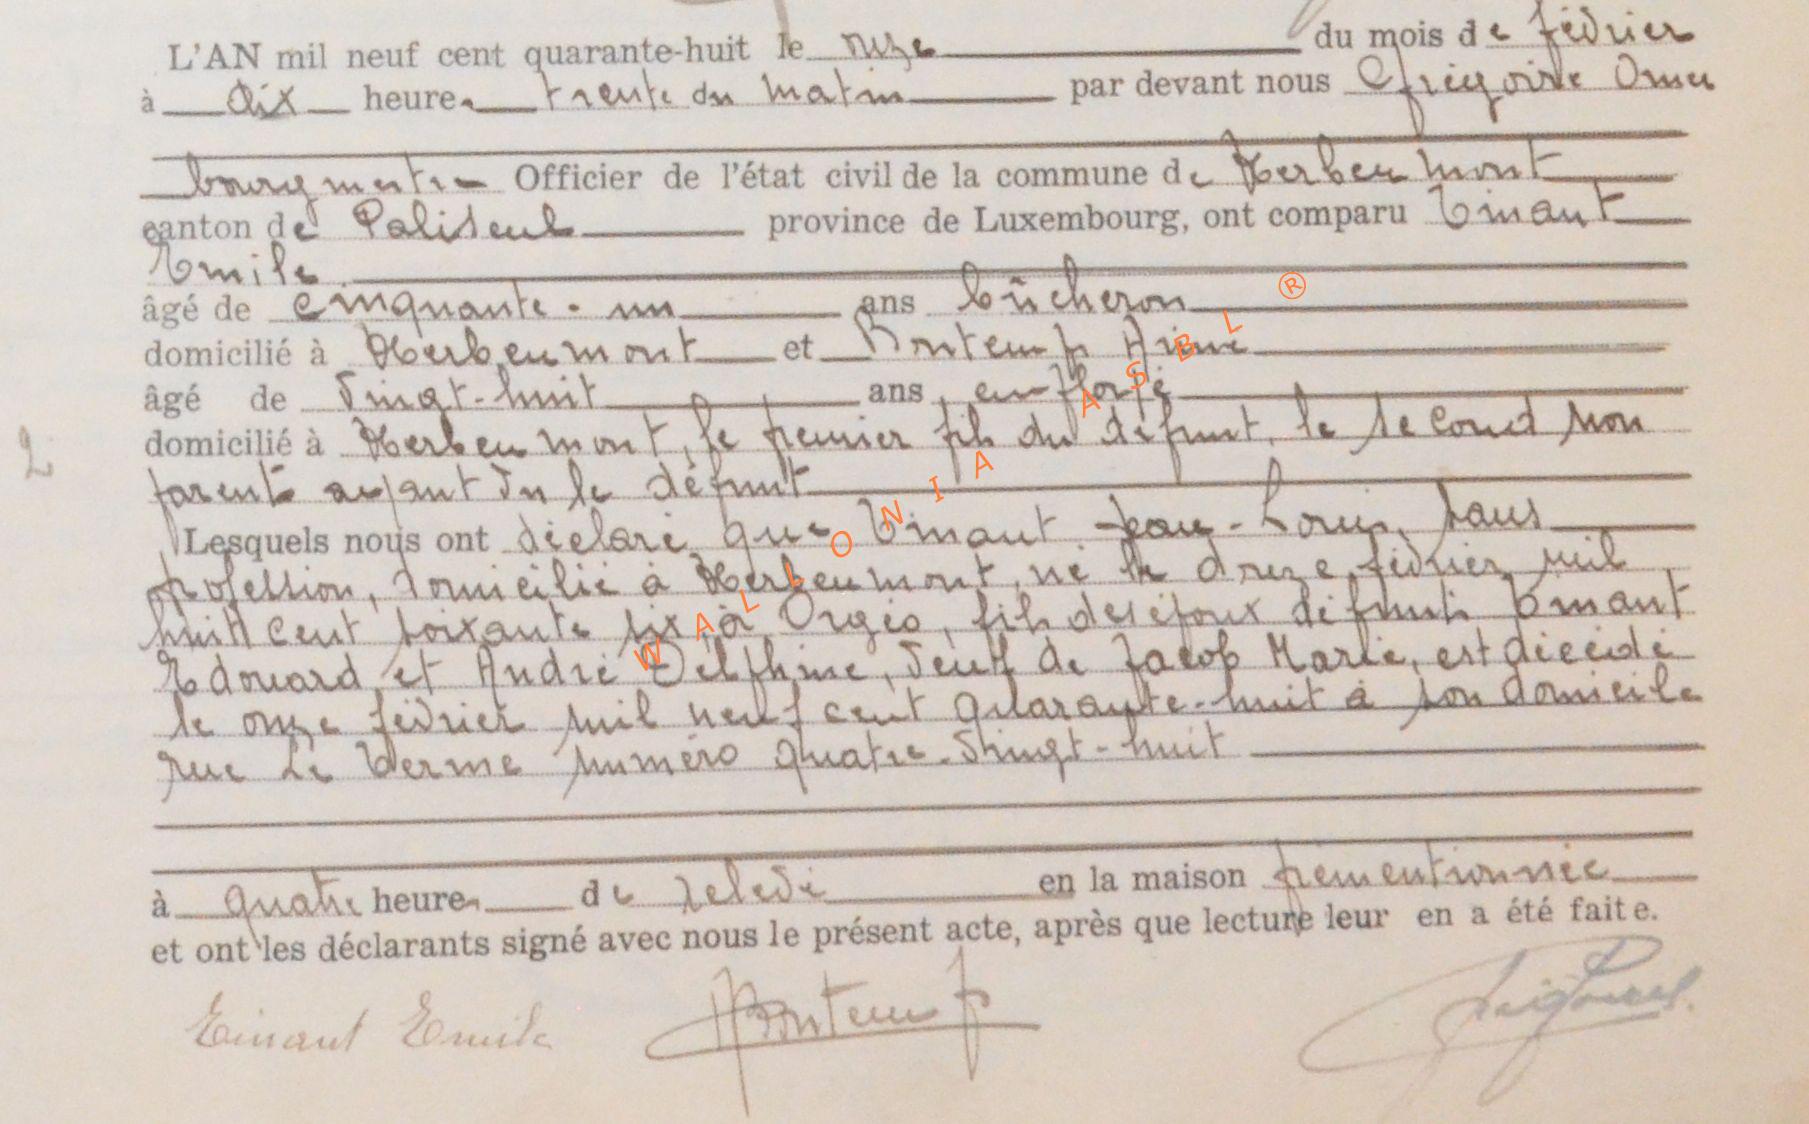 L'AN mil neuf cent quarante-huit le onze du mois de février
à dix heures trente du matin par devant nous Grégoire Omer
bourgmestre Officier de l'état civil de la commune de Herbeumont
canton de Paliseul province de Luxembourg, ont comparu Tinant
Emile
âgé de cinquante-un ans bûcheron ®
domicilié à Herbeumont et Pontemps
âgé de vingt-huit ans, employé
domicilié à Herbeumont, le premier fils du défunt, le second non
2
parent ayant vu le défunt
Lesquels nous ont déclaré que Tinant Jean-Louis, sans
profession, domicilié à Herbeumont, né le douze février mil
huit cent soixante six à Orgeo, fils des époux défunts Tinant
Edouard et André Delphine, veuf de Jacob Marie, est décédé
le onze février mil neuf cent quarante-huit à son domicile
rue Le Terme numéro quatre-vingt-huit
WALLONIA ASBL
à quatre heures de relevé en la maison prémentionnée
et ont les déclarants signé avec nous le présent acte, après que lecture leur en a été faite.
Tinant Emile